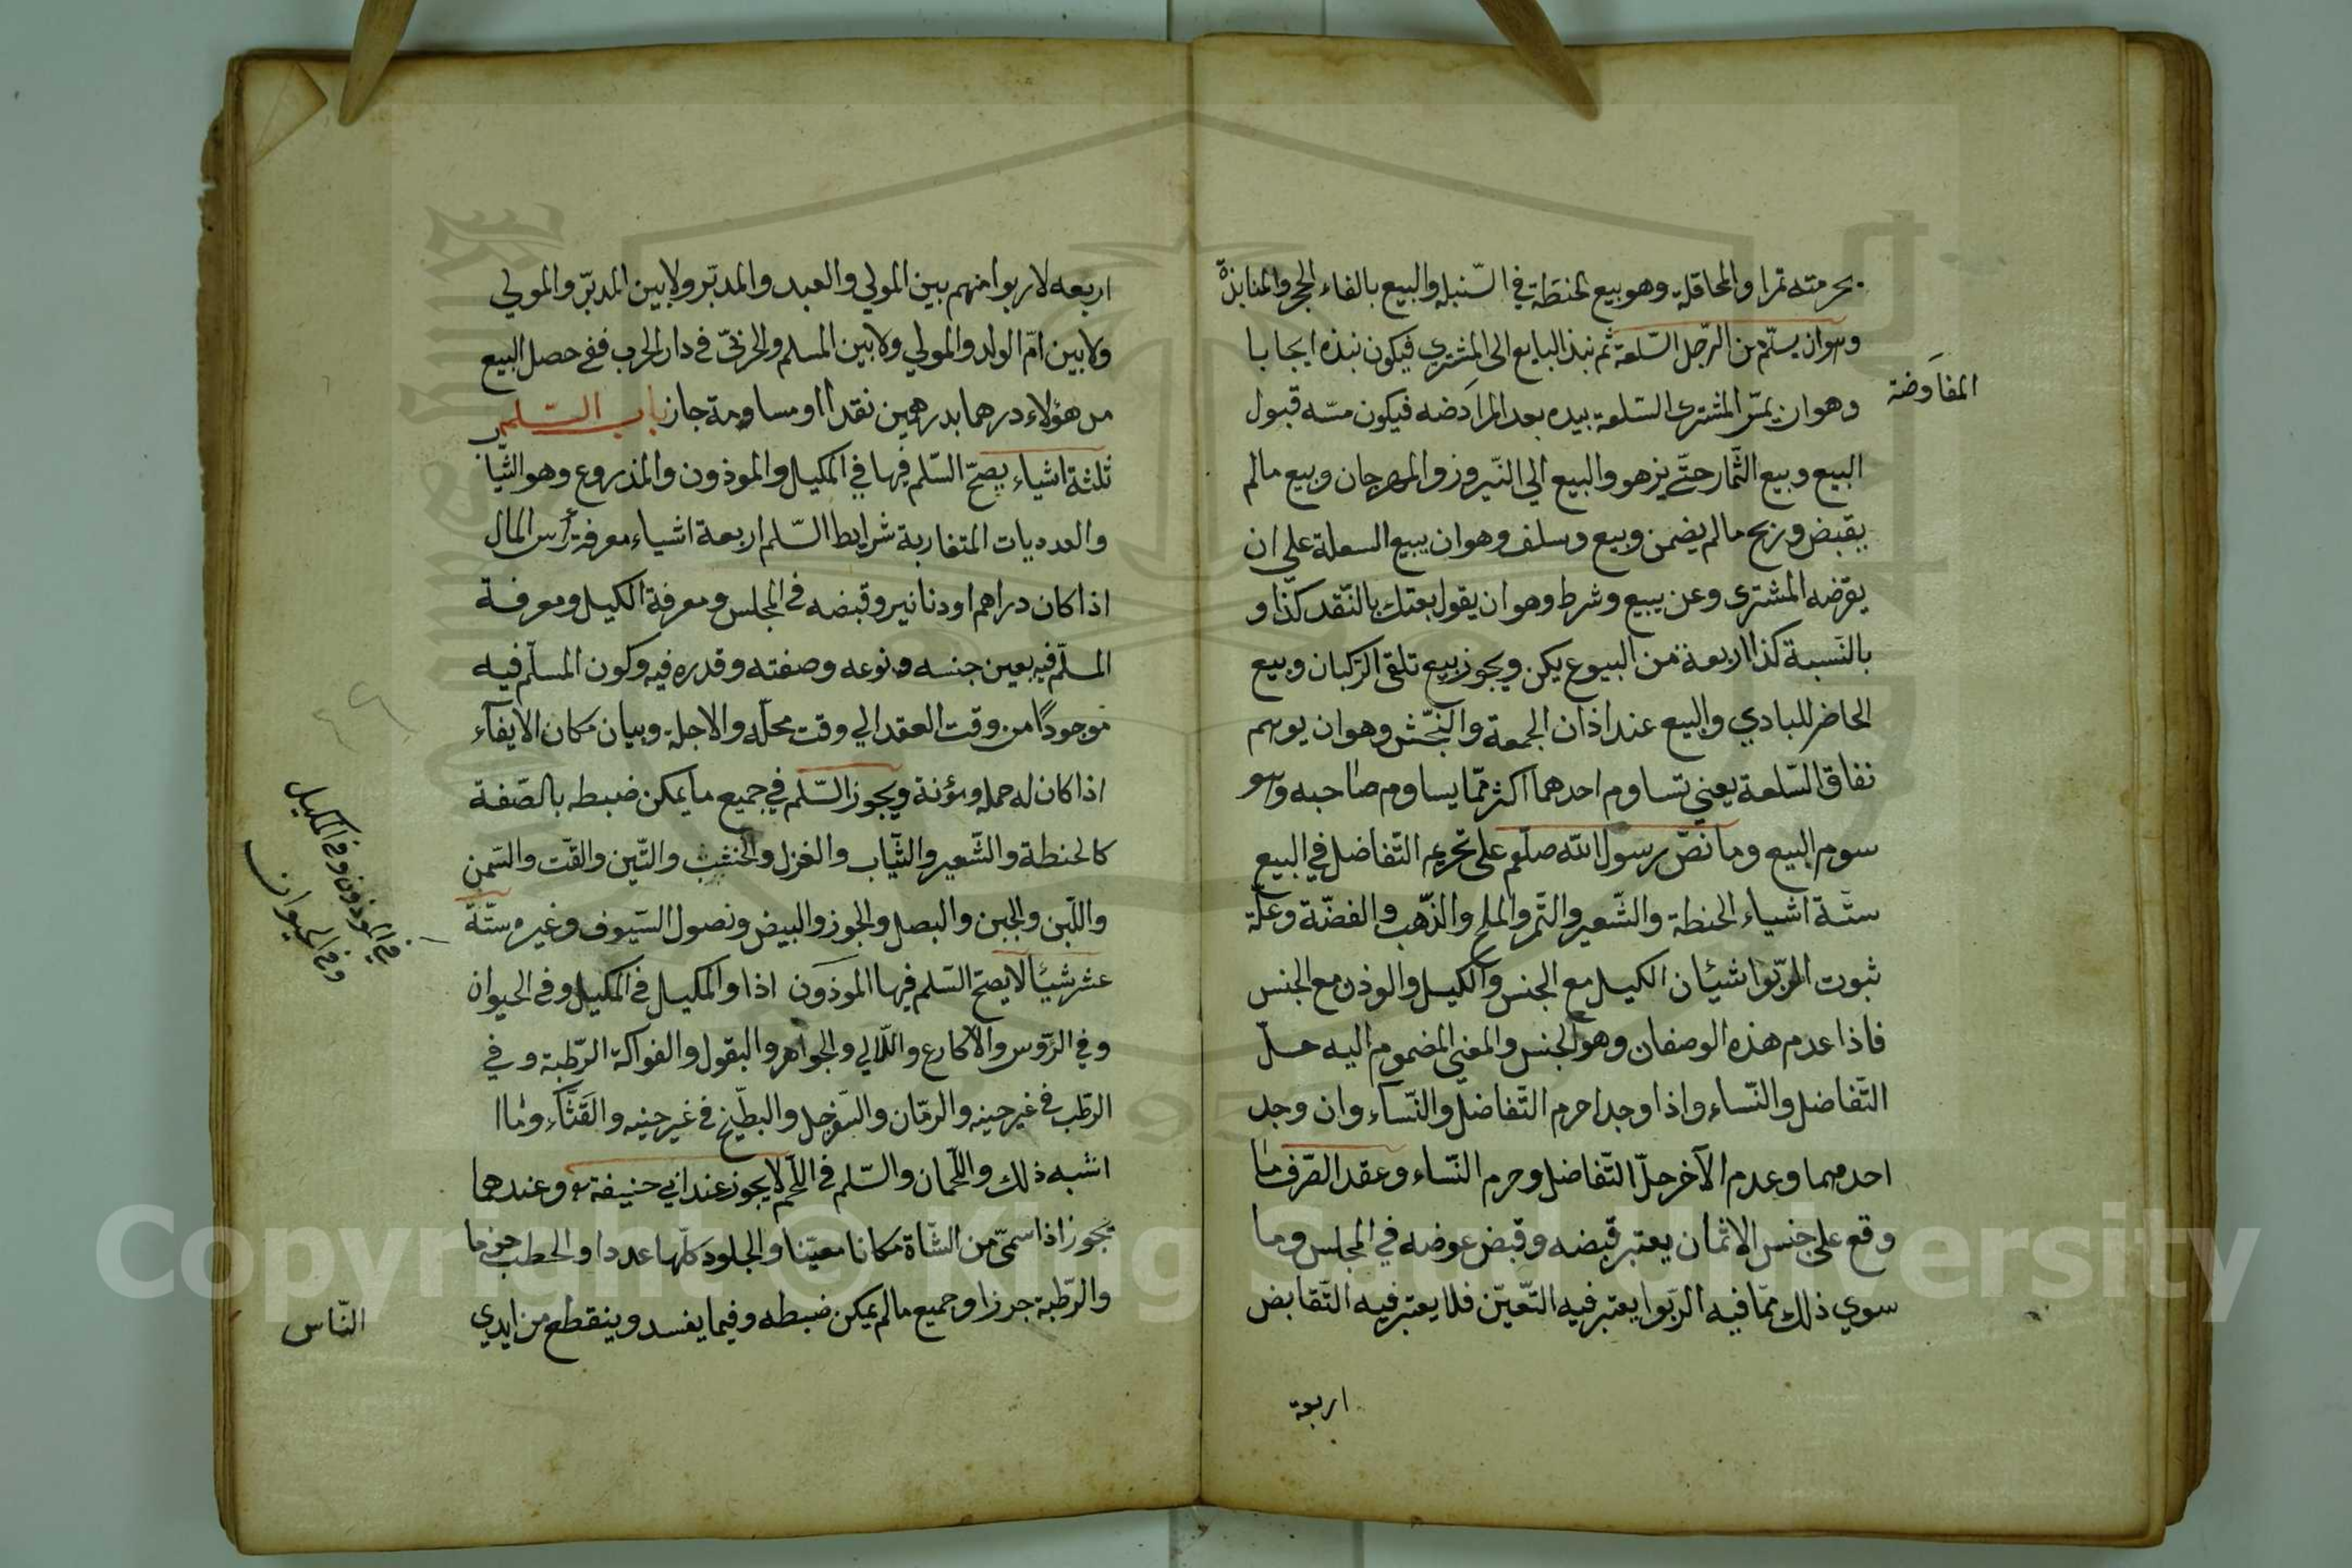 بحرمته تمرا والمحاقلة وهو بيع الحنطة في السّنبله والبيع بالقاء الحجر والمنابذة
وهو ان يسلّم من الرّجل السّلعة ثم نبذ البايع الى المشتري فيكون نبذه ايجابا
المفاوضة
وهو ان يمسّ المشترى السّلعة بيده بعد المراَدضه فيكون مسّه قبول
البيع وبيع الثّمار حتّى يزهو والبيع الي النّيروز والمهرجان وبيع مالم
يقبض وربح مالم يضمن وبيع وسلف وهو ان يبيع السعلة علي ان
يقرّضه المشترى وعن بيع وشرط وهو ان يقول بعتك بالنّقد كذا و
بالنّسية كذا اربعة من البيوع يكن ويجوز بيع تلقى الرّكبان وبيع
الحاضر للبادي والبيع عند اذان الجمعة والنّجش وهو ان يوهم
نفاق السّلعة يعني تساوم احدهما اكثر ممّا يساوم صاحبه وهو
سوم البيع وما نصّ رسول الله صلعم على تحريم التّفاضل في البيع
ستّة اشياء الحنطة والشّعير والتّمر والملح والذّهب والفضّة وعلّة
ثبوت الرّبوا شيئان الكيل مع الجنس والكيل والوذن مع الجنس
فاذا عدم هذه الوصفان وهو الجنس والمعني المضموم اليه حلّ
التّفاضل والنّساء واذا وجدا حرم التّفاضل والنّساء وان وجد
احدهما وعدم الآخر حلّ التّفاضل وحرم النّساء وعقد الصّرف ما
وقع على جنس الاثمان يعتبر قبضه وقبض عوضه في المجلس وما
سوي ذلك ممّا فيه الرّبوا يعتبر فيه التّعيّن فلا يعتبر فيه التّقابض
اربعة
اربعه لا ربوا منهم بين المولي والعبد والمدبّر ولا بين المدبّر والمولي
ولا بين امّ الولد والمولي ولا بين المسلم والحربىّ في دار الحرب ففي حصل البيع
من هؤلاء درهما بدرهمين نقدا او مساومة جاز باب السّلم
ثلثة اشياء يصحّ السّلم فيها في المكيل والموذون والمذروع وهو الثياب
والعدديات المتقاربة شرايط السّلم اربعة اشياء معرفة رأس المال
اذا كان دراهم او دنانير وقبضه في المجلس ومعرفة الكيل ومعرفة
المسلّم فيه بعين جنسه ونوعه وصفته وقدره فيه وكون المسلّم فيه
موجودًا من وقت العقد الي وقت محلّه والاجلة وبيان مكان الايفآء
اذا كان له حمله ومؤنة ويجوز السّلم في جميع ما يمكن ضبطه بالصّفة
كالحنطة والشّعير والثّياب والغزل والخشب والتّين والقتّ والسّمن
واللّبن والجبن والبصل والجوز والبيض ونصول السّيوف وغيره ستّة
عشر شيئا لا يصحّ السّلم فيها الموذون اذا والمكيل في المكيل وفي الحيوان
في الموذون وفي المكيل
وفي الحيوان
وفي الرّؤس والاكارع واللّالي والجواهر والبقول والفواكة الرّطبة وفي
الرطّب في غير حينه والرمّان والسّفرجل والبطّيخ في غير حينه والقثّآء وما
اشبه ذلك واللّحمان والسّلم في اللّحم لا يجوز عند ابي حنيفة وعندهما
يجوز اذا سمىّ من الشّاة مكانا معيّنا والجلود كلّها عددا والحطب حزما
والرّطبة جرزا وجميع مالم يمكن ضبطه وفيما يفسد وينقطع من ايدي
النّاس
Copyright © King Saud University